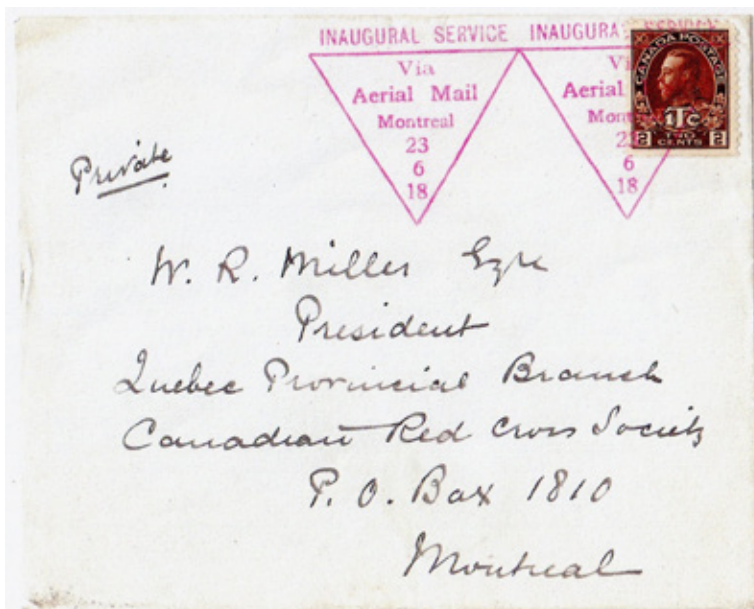 INAUGURAL SERVICE INAUGURAL SERVICE
Via
Aerial Mail
Montreal
23
6
18
Via
Aerial
Mont
23
6
18
CANADA POSTAGE
1TC
2 TWO CENTS 2
Private
W. R. Miller Esqre
President
Quebec Provincial Branch
Canadian Red Cross Society
P. O. Box 1810
Montreal